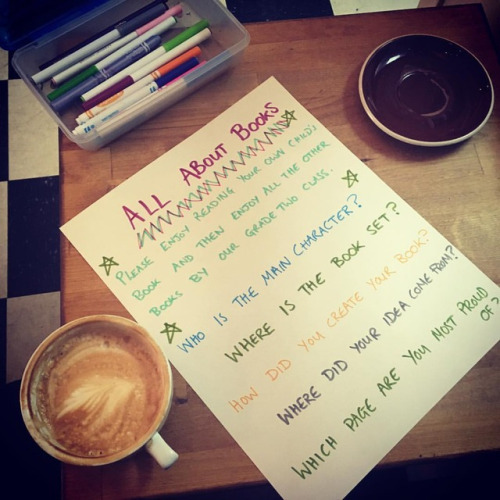 ALL ABOUT BOOKS
PLEASE ENJOY READING YOUR OWN CHILD'S
BOOK AND THEN ENJOY ALL THE OTHER
BOOKS BY OUR GRADE TWO CLASS.
WHO IS THE MAIN CHARACTER?
WHERE IS THE BOOK SET?
HOW DID YOU CREATE YOUR BOOK?
WHERE DID YOUR IDEA COME FROM?
WHICH PAGE ARE YOU MOST PROUD
OF